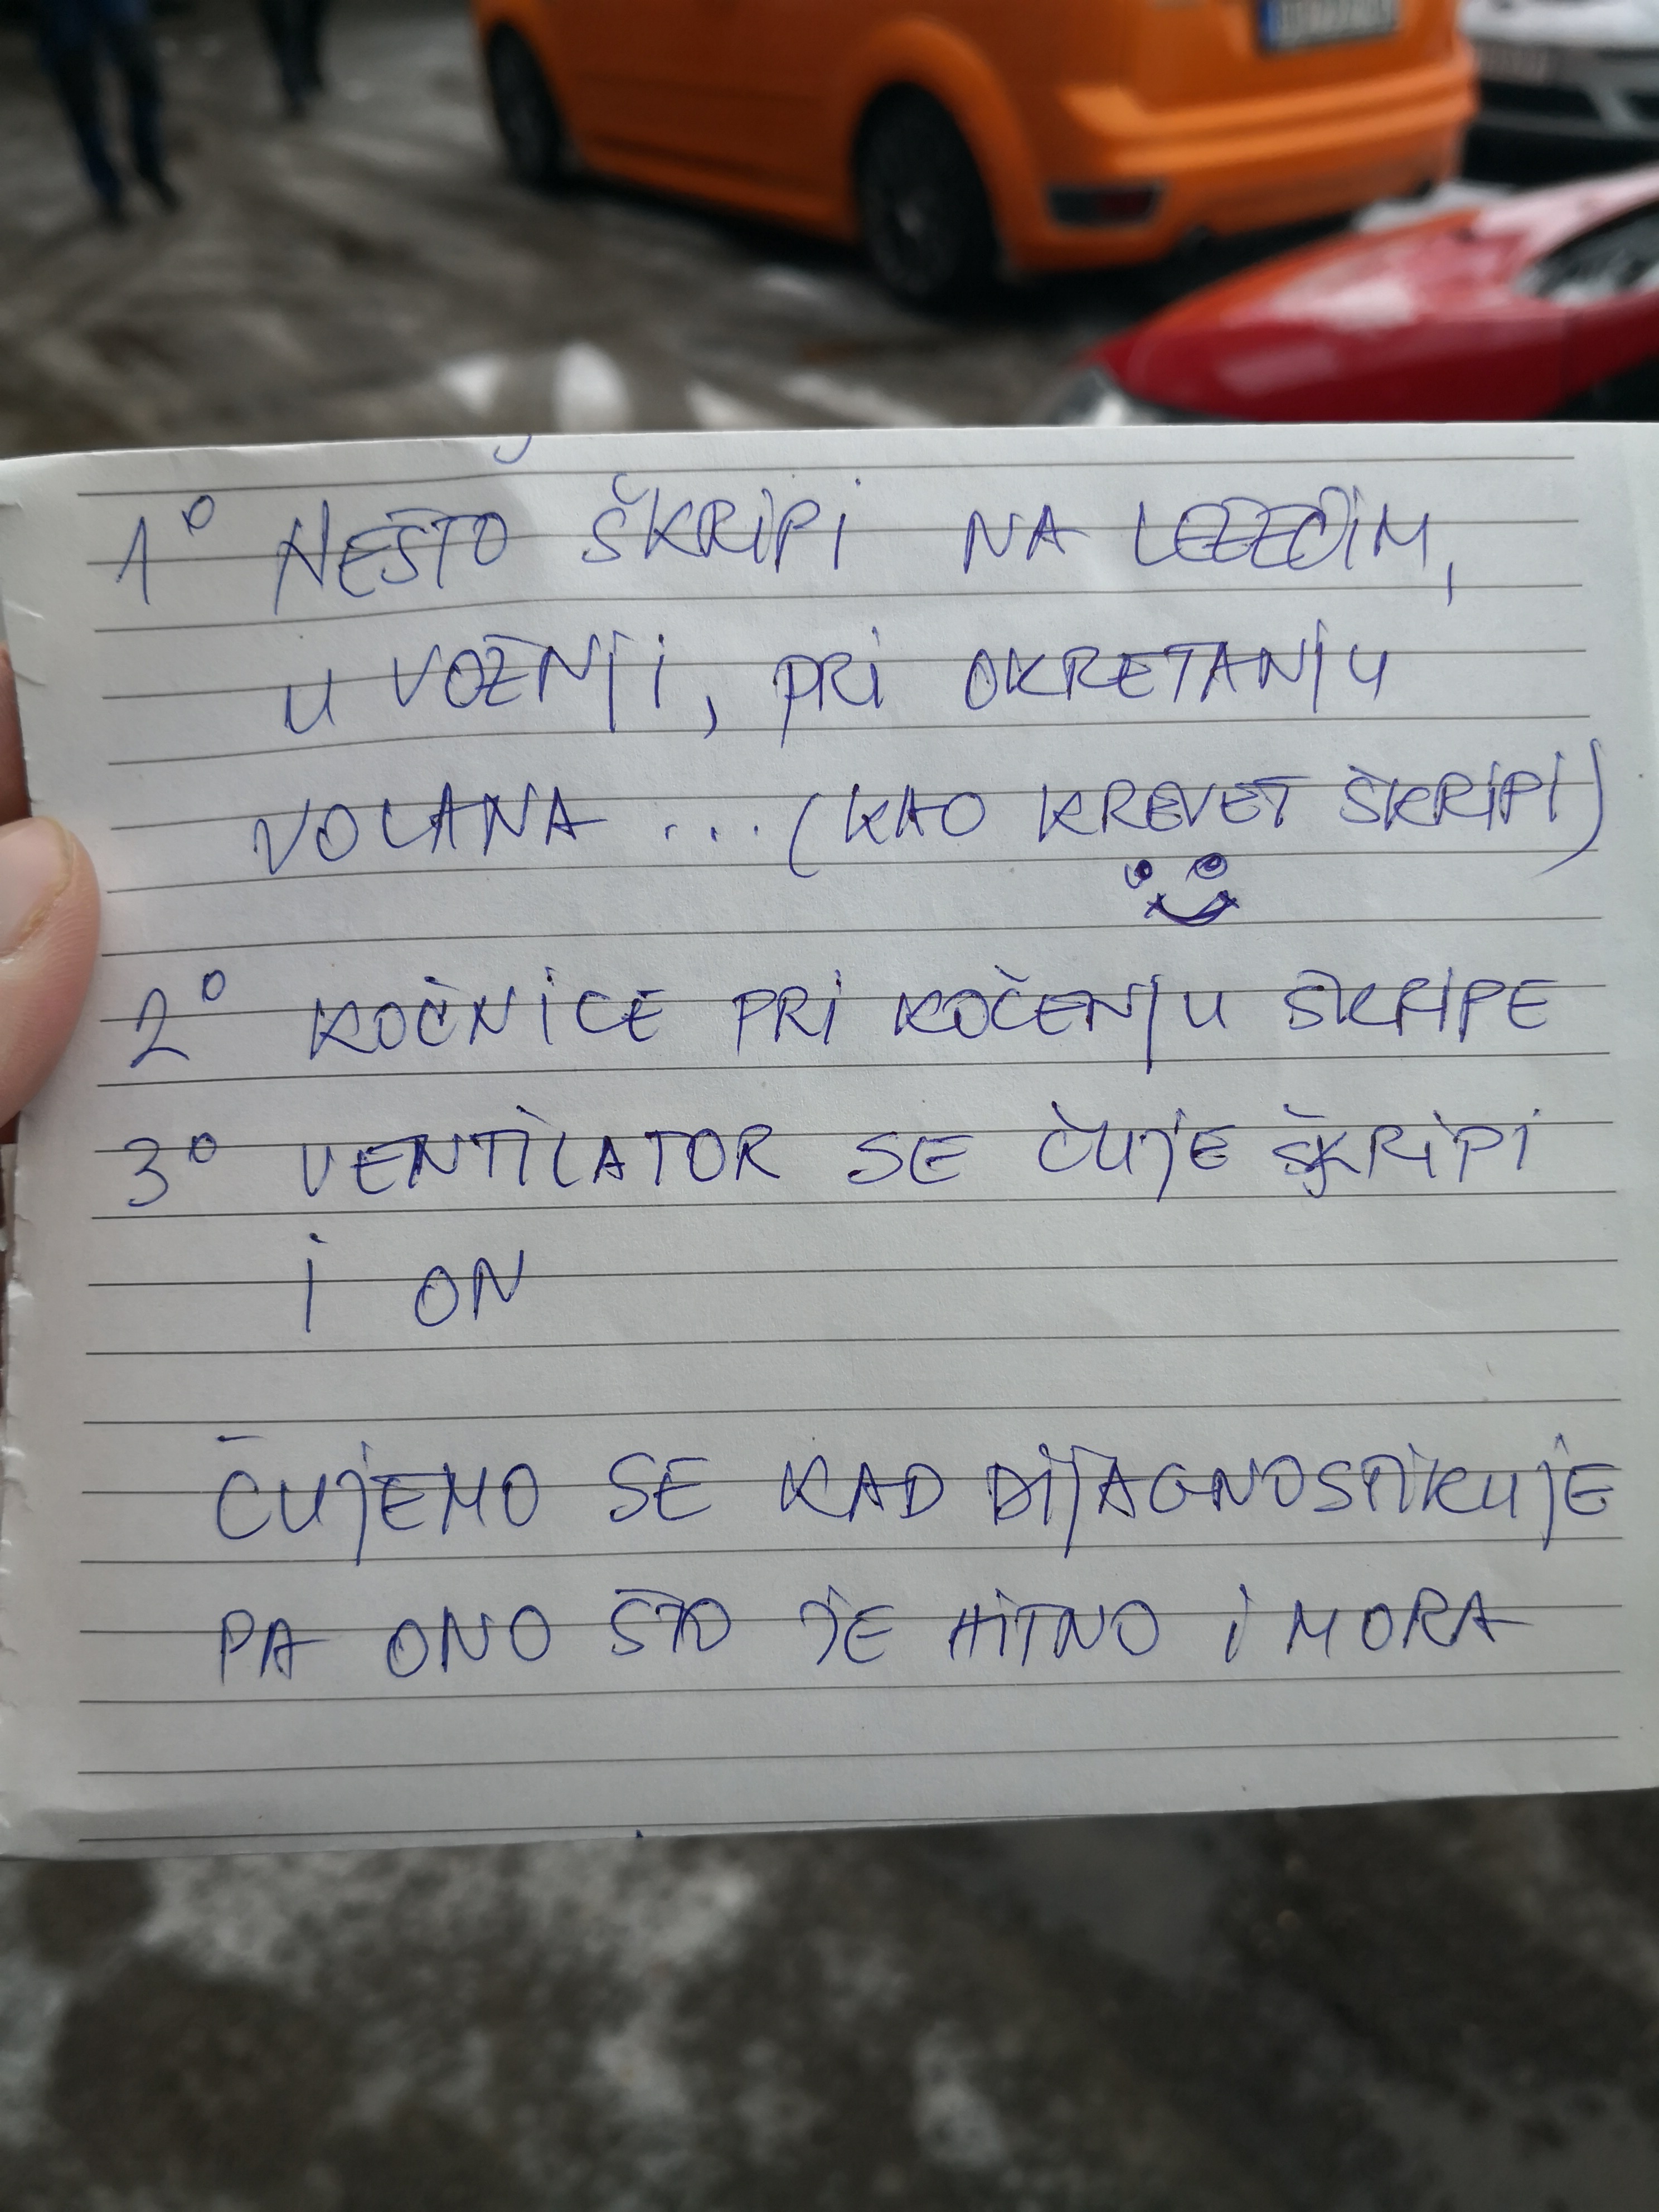 1° NEŠTO ŠKRIPI NA LEŽEĆIM,
U VOŽNJI, PRI OKRETANJU
VOLANA ... (KAO KREVET ŠKRIPI)
2° KOČNICE PRI KOČENJU ŠKRIPE
3° VENTILATOR SE ČUJE ŠKRIPI
I ON
ČUJEMO SE KAD DIJAGNOSTIKUJE
PA ONO ŠTO JE HITNO I MORA